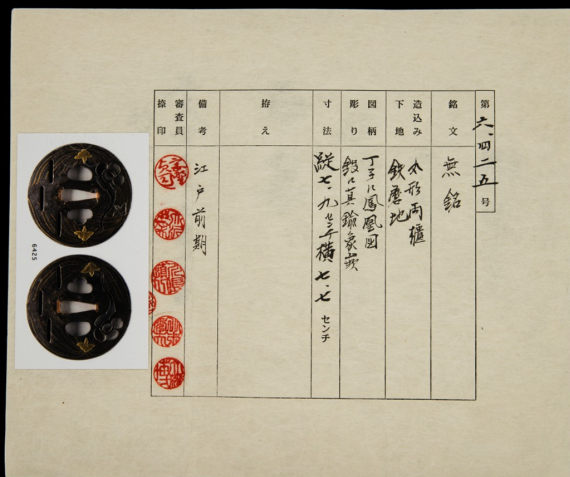 第六、四二五号
銘文 無銘
造込み 丸形両櫃
下地 鉄磨地
図柄 丁子に鳳凰図
彫り 鋤に真鍮象嵌
寸法 縦七・九センチ横七・七センチ
拵え
備考 江戸前期
審査員
捺印
6425